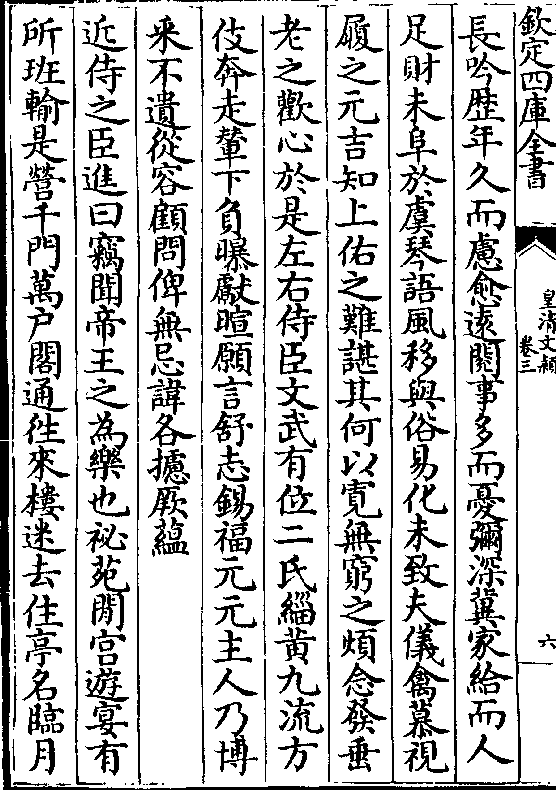 欽定四庫全書
皇清文穎
卷三
六
長吟歴年久而慮愈遠閱事多而憂彌深冀家給而人
足財未阜於虞琴語風移與俗易化未致夫儀禽慕視
履之元吉知上佑之難諶其何以寛無窮之煩念發垂
老之歡心於是左右侍臣文武有位二氏緇黄九流方
伎奔走輦下負曝獻暄願言舒志錫福元元主人乃博
采不遺從容顧問俾無忌諱各攄厥蘊
近侍之臣進曰竊聞帝王之為樂也祕苑閒宫遊宴有
所班輸是營千門萬户閣通徃來樓迷去住亭名臨月